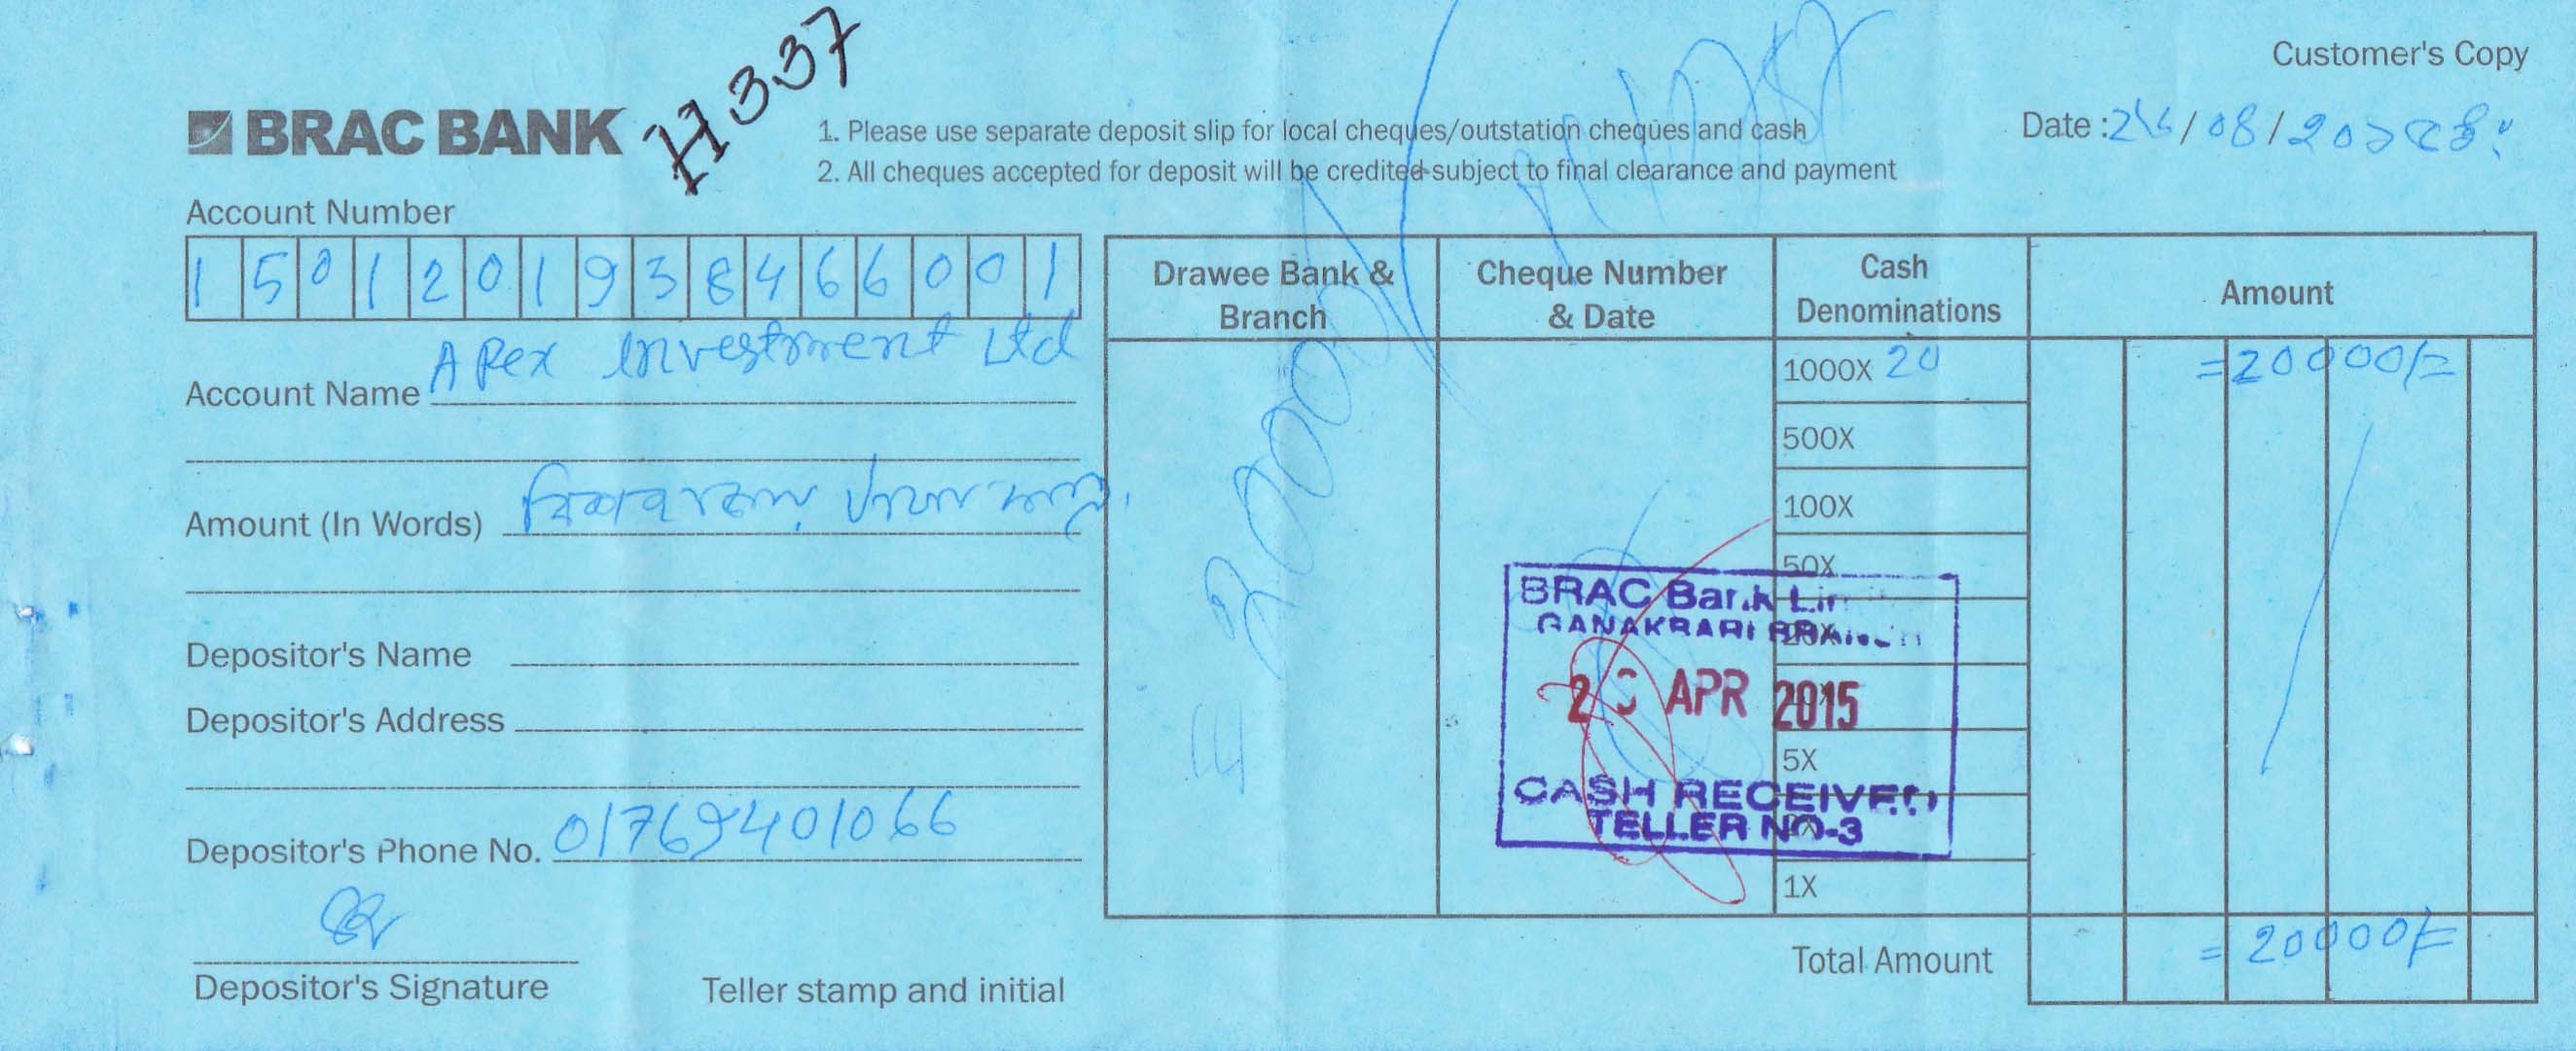 Customer's Copy
H337
BRAC BANK
1. Please use separate deposit slip for local cheques/outstation cheques and cash
2. All cheques accepted for deposit will be credited subject to final clearance and payment
Date :
Account Number
1501201938466001
Account Name Apex Investment Ltd
Amount (In Words)
Depositor's Name
Depositor's Address
Depositor's Phone No. 01769401066
Depositor's Signature
Teller stamp and initial
Drawee Bank & Branch
Cheque Number & Date
Cash Denominations
Amount
1000X 20 =20000/=
500X
100X
50X
5X
1X
BRAC Bank
APR 2015
CASH RECEIVED
TELLER NO-3
Total Amount = 20000/=